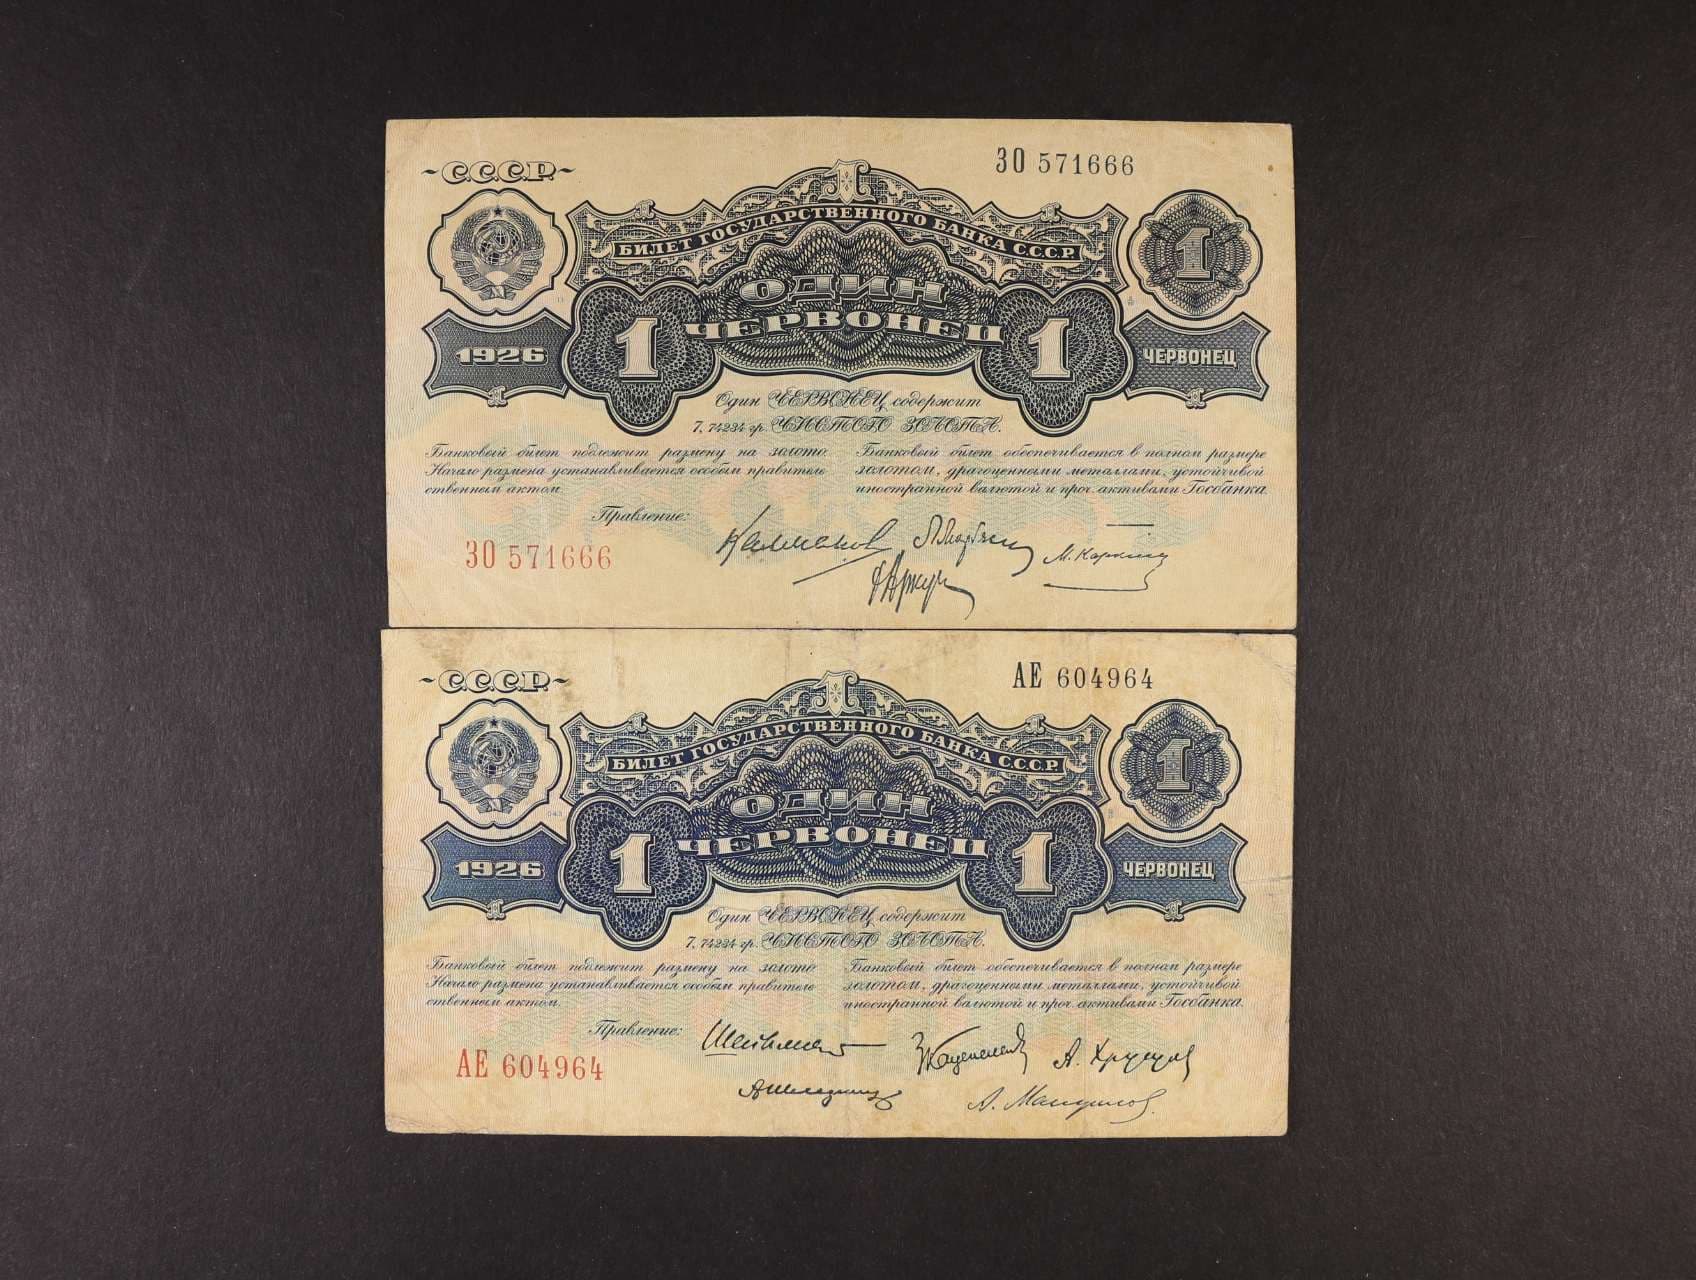 С.С.С.Р.
ЗО 571666
1
БИЛЕТ ГОСУДАРСТВЕННОГО БАНКА С.С.С.Р.
1
ОДИН
ЧЕРВОНЕЦ
1
1
1926
ЧЕРВОНЕЦ
1
1
Один ЧЕРВОНЕЦ содержит
7,74234 гр. ЧИСТОГО ЗОЛОТА.
Банковый билет подлежит размену на золото.
Начало размена устанавливается особым правитель
ственным актом.
Банковый билет обеспечивается в полном размере
золотом, драгоценными металлами, устойчивой
иностранной валютой и проч. активами Госбанка.
Правление:
ЗО 571666
С.С.С.Р.
АЕ 604964
1
БИЛЕТ ГОСУДАРСТВЕННОГО БАНКА С.С.С.Р.
1
ОДИН
ЧЕРВОНЕЦ
1
1
043
1926
ЧЕРВОНЕЦ
1
1
Один ЧЕРВОНЕЦ содержит
7,74234 гр. ЧИСТОГО ЗОЛОТА.
Банковый билет подлежит размену на золото.
Начало размена устанавливается особым правитель
ственным актом.
Банковый билет обеспечивается в полном размере
золотом, драгоценными металлами, устойчивой
иностранной валютой и проч. активами Госбанка.
Правление:
АЕ 604964